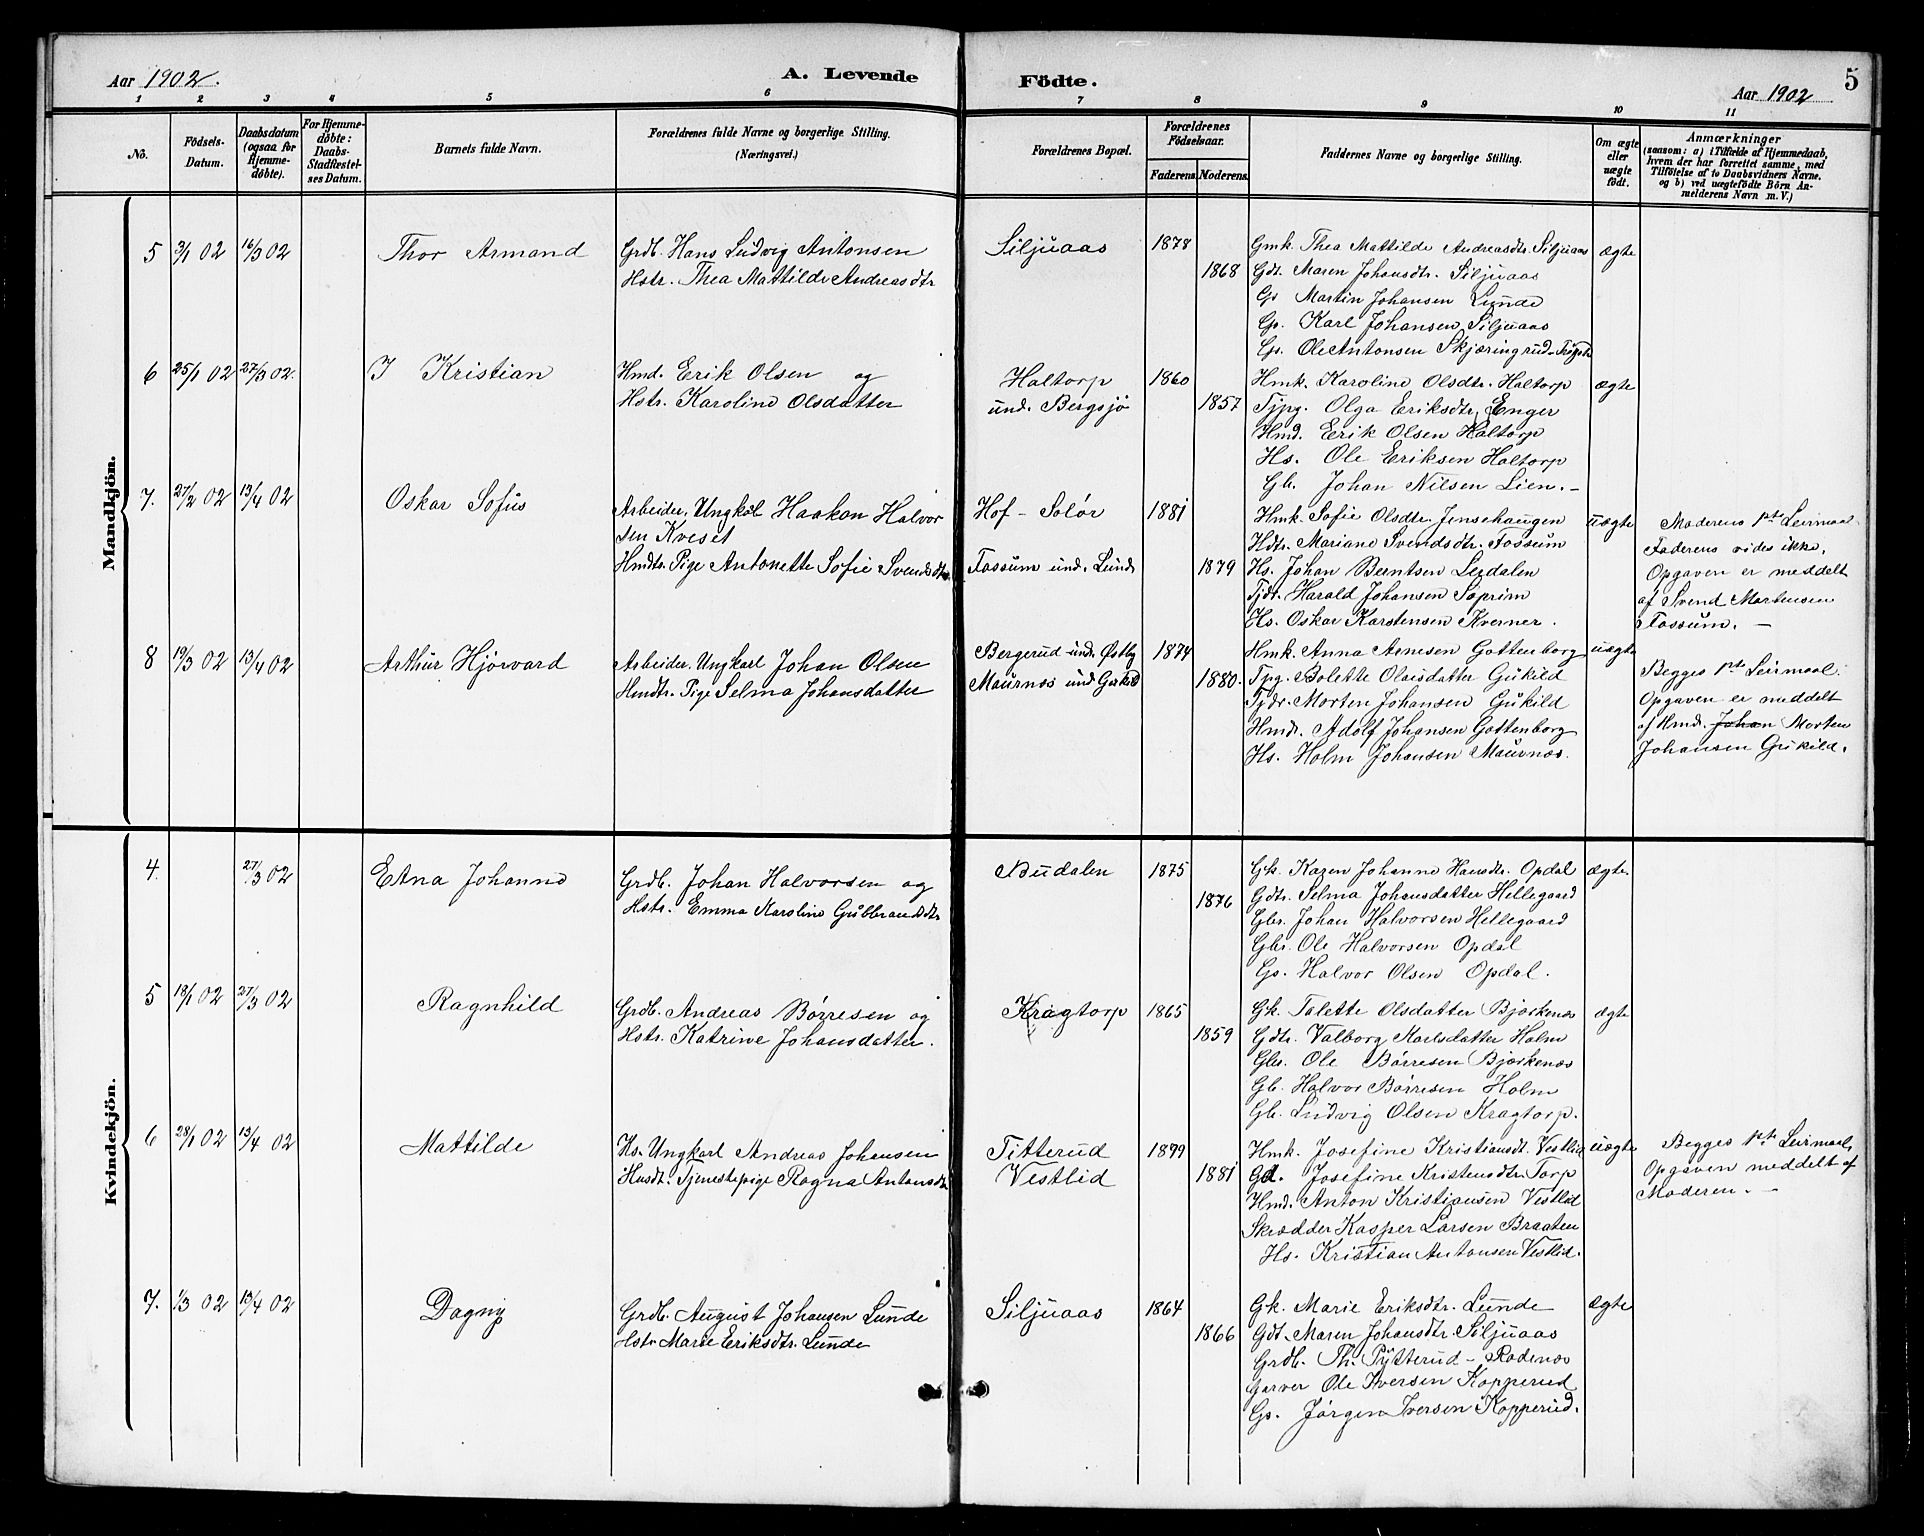 Aar 1902.
A. Levende Födte.
5
Aar 1902
1 2 3 4 5 6 7 8 9 10 11
No.
Födsels-
Datum.
Daabsdatum
(ogsaa for
Hjemme-
döbte).
For Hjemme-
döbte:
Daabs-
Stadfæstel-
ses Datum.
Barnets fulde Navn.
Forældrenes fulde Navne og borgerlige Stilling.
(Næringsvei.)
Forældrenes Bopæl.
Forældrenes
Födselsaar.
Faderens. Moderens.
Faddernes Navne og borgerlige Stilling.
Om ægte
eller
uægte
födt.
Anmærkninger
(saasom: a) i Tilfælde af Hjemmedaab,
hvem der har forrettet samme, med
Tilföielse af to Daabsvidners Navne.
og b) ved uægtefödte Börn An-
melderens Navn m. V.)
Mandkjön.
5 3/1 02 16/3 02 Thor Armand
Grdb. Hans Ludvig Antonsen
Hstr. Thea Mattilde Andreasdtr
Siljuaas 1878
1868
Gmk. Thea Mattilde Andreasdtr. Siljuaas ægte
Gdt. Maren Johansdtr. Siljuaas
Gs Martin Johansen Lunde
Gs. Karl Johansen Siljuaas
Gs. Ole Antonsen Skjæringrud
6 25/1 02 27/3 02. Kristian
Hmd. Erik Olsen og
Hstr. Karoline Olsdatter
Haltorp 1860
und. Bergsjø 1857
Hmk. Karoline Olsdtr. Haltorp ægte
Tjpg. Olga Eriksdtr. Enger
Hmd. Erik Olsen Haltorp
Hs. Ole Eriksen Haltorp
Gb. Johan Nilsen Lien.-
7. 27/2 02 13/4 02 Oskar Sofus
Arbeider, Ungkal Haakon Halvor
sen Kveset
Hmdtr. Pige Antonette Sofie Svendsdtr.
Hof - Solør 1881
Fossum und. Lund 1879
Hmk. Sofie Olsdtr. Jensehaugen uægte
Hdtr. Mariane Svendsdtr. Fossum
Hs. Johan Berntsen Lerdalen
Tjdr. Harald Johansen Soprim
Hs. Oskar Karstensen Kverner.
Moderens 1ste Leirmaal
Faderens vides ikke.
Opgaven er meddelt
af Svend Mortensen
Fossum. -
8 19/3 02 13/4 02 Arthur Hjørvard
Arbeider, Ungkarl Johan Olsen
Hmdtr. Pige Selma Johansdatter
Bergerud und. Østby 1874
Maurnes und Gukild 1880.
Hmk. Anna Arnesen Gottenborg uægte
Tpg. Bolette Olaisdatter Gukild
Tjdr. Morten Johansen Gukild
Hmdr. Adolf Johansen Gottenborg
Hs. Holm Johansen Maurnes.
Begges 1ste Leirmaal.
Opgaven er meddelt
af Hmd. Johan Morten
Johansen Gukild.
Kvindekjön.
4. 27/3 02 Edna Johanne
Grdb. Johan Halvorsen og
Hstr. Emma Karoline Gulbrandsdtr
Budalen 1875
1876
Gk. Karen Johanne Hansdtr. Opdal ægte.
Gdtr. Selma Johansdatter Hellegaard
Gbr. Johan Halvorsen Hellegaard
Gbr. Ole Halvorsen Opdal
Gs. Halvor Olsen Opdal.
5 18/1 02 27/3 02 Ragnhild
Grdb. Andreas Børresen og
Hstr. Katrine Johansdatter.
Kragtorp 1865
1859
Gk. Talette Olsdatter Bjørkenes ægte
Gdtr. Valborg Karlsdatter Holm
Gbr. Ole Børresen Bjørkenes
Gb. Halvor Børresen Holm
Gb. Ludvig Olsen Kragtorp.
6 28/1 02 13/4 02 Mattilde
Hs. Ungkarl Andreas Johansen
Husdt. Tjenestepige Ragna Antonsdtr
Titterud 1899
Vestlid 1881
Hmk. Josefine Kristiansdt. Vestlid uægte
Gd. Josefine Kristensdtr. Torp
Hmd. Anton Kristiansen Vestlid
Skrædder Kasper Larsen Braaten
Hs. Kristian Antonsen Vestlid.
Begges 1ste Leirmaal,
Opgaven meddelt af
Moderen. -
7. 1/3 02 13/4 02 Dagny
Grdb. August Johansen Lunde
Hstr. Marie Eriksdtr. Lunde
Siljuaas 1864
1866
Gk. Marie Eriksdtr. Lunde Ægte
Gdt. Maren Johansdtr. Siljuaas
Grdb. Th. Pytterud - Rødenes
Garver Ole Iversen Kopperud
Gs. Jørgen Iversen Kopperud.